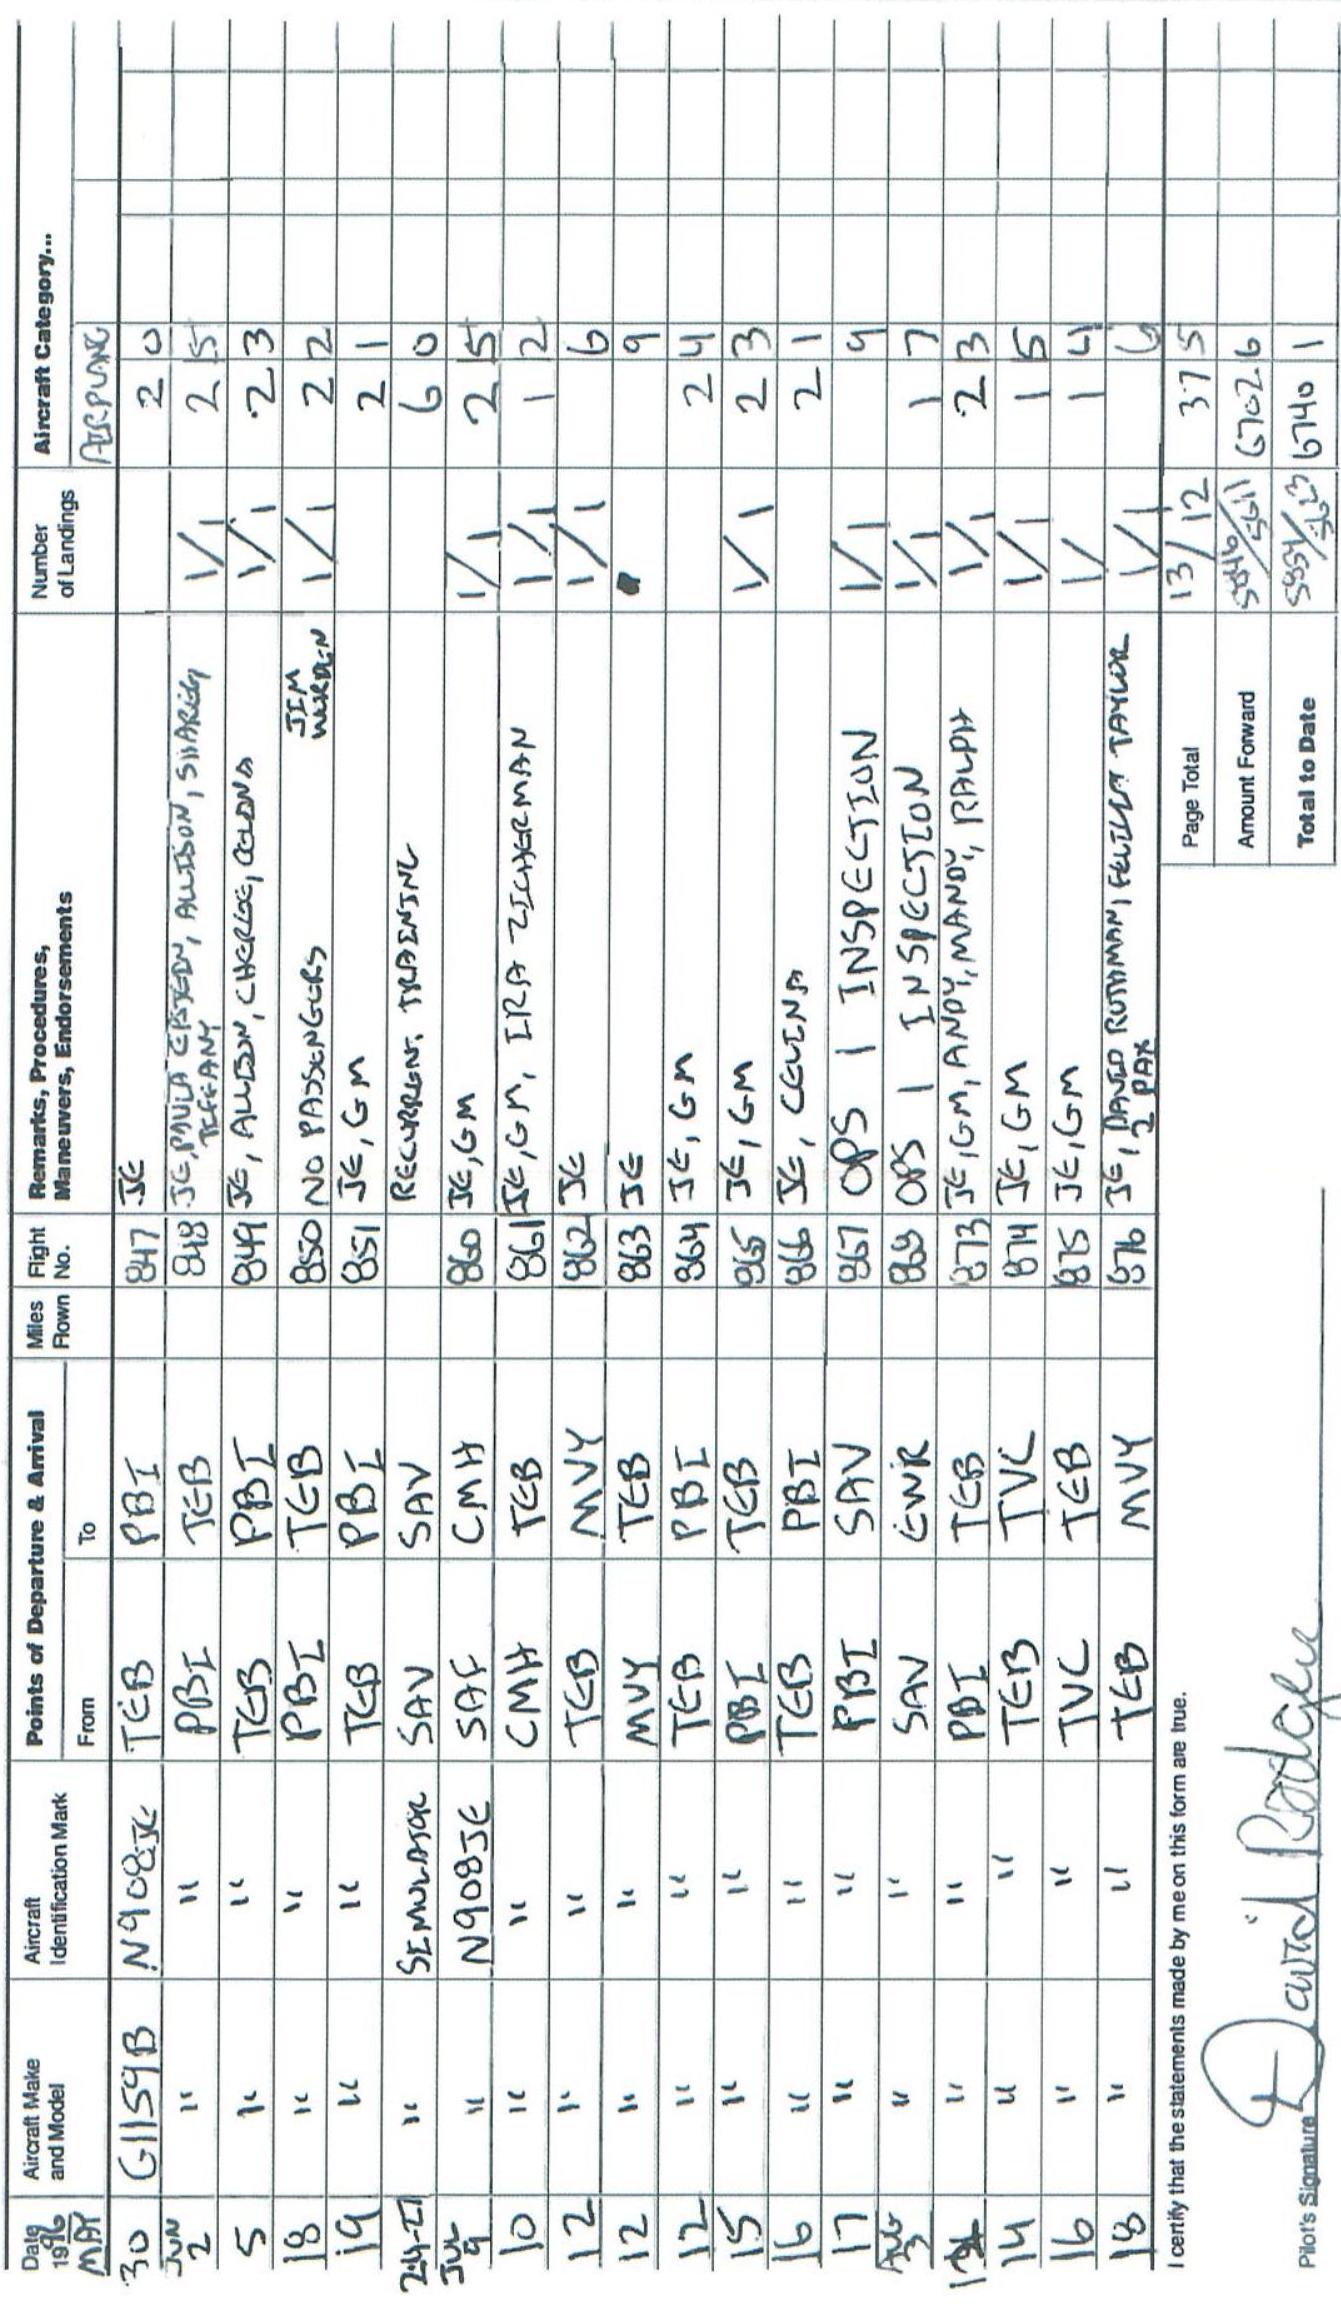 Date 1996 Aircraft Make and Model Aircraft Identification Mark Points of Departure & Arrival Miles Flown Flight No. Remarks, Procedures, Maneuvers, Endorsements Number of Landings Aircraft Category...
MAY From To AIRPLANE
30 G1159B N908JE TEB PBI 847 JE 2 0
JUN 2 " " PBI TEB 848 JE, PAULA EPSTEIN, ALLISON, TIFFANY 1/1 2 5
5 " " TEB PBI 849 JE, ALLISON, 1/1 2 3
18 " " PBI TEB 850 NO PASSENGERS JIM 1/1 2 2
19 " " TEB PBI 851 JE, GM 2 1
24-27 " SIMULATOR SAV SAV RECURRENT TRAINING 6 0
JUL 9 " N908JE SAF CMH 860 JE, GM 1/1 2 5
10 " " CMH TEB 861 JE, GM, IRA ZICHERMAN 1/1 1 2
12 " " TEB MVY 862 JE 1/1 6
12 " " MVY TEB 863 JE 9
12 " " TEB PBI 864 JE, GM 2 4
15 " " PBI TEB 865 JE, GM 1/1 2 3
16 " " TEB PBI 866 JE, CELINA 2 1
17 " " PBI SAV 867 OPS 1 INSPECTION 1/1 9
AUG 3 " " SAV EWR OPS 1 INSPECTION 1/1 1 7
" " PBI TEB 873 JE, GM, ANDY, MANDY, RALPH 1/1 2 3
14 " " TEB TVC 874 JE, GM 1/1 1 5
16 " " TVC TEB 875 JE, GM 1/ 1 4
18 " " TEB MVY 876 JE, DAVID ROTHMAN, TAYLOR 2 PAX 1/1 6
I certify that the statements made by me on this form are true. Page Total 13/12 37 5
Amount Forward 6702 6
Pilot's Signature David Rodgers Total to Date 6740 1